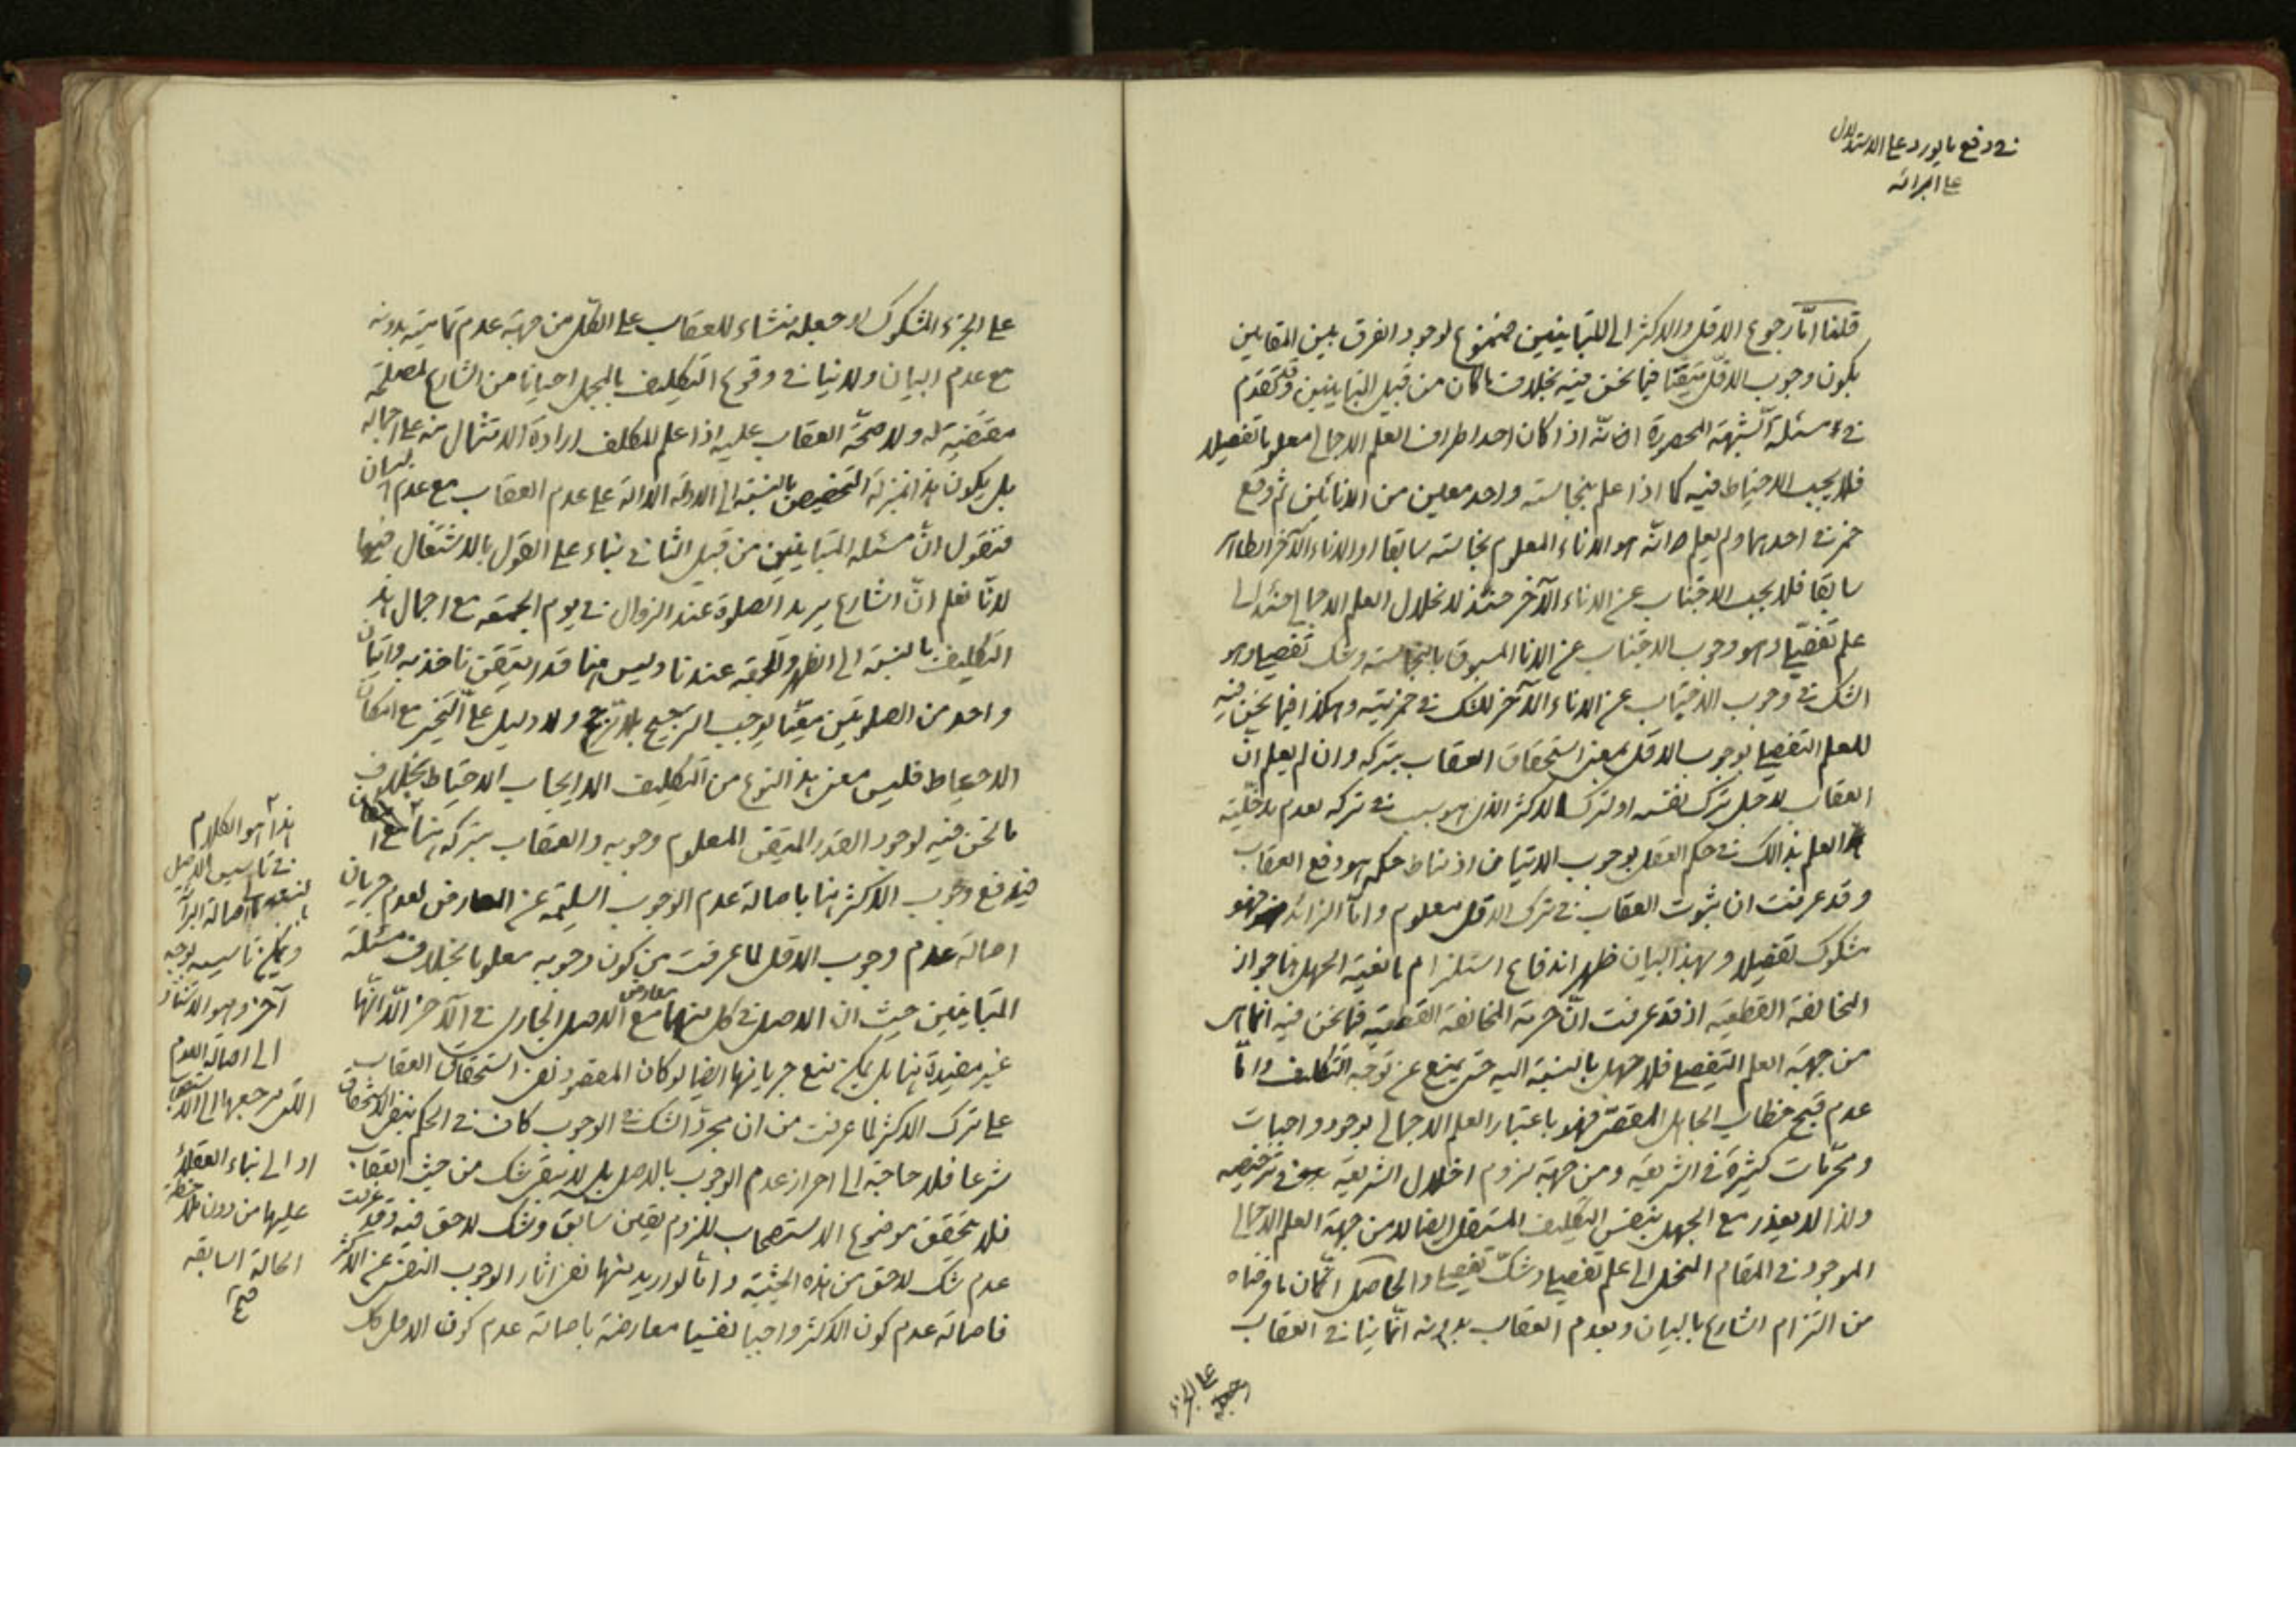 في دفع ما يورد على الاستدلال
على البرائة
قلنا امّا رجوع الاقل والاكثر الى المتباينين فممنوع لوجود الفرق بين المقامين
بكون وجوب الاقلّ متيقّنا فيما نحن فيه بخلاف ما كان من قبيل المتباينين وقد تقدّم
في مسئلة الشّبهة المحصورة انّه اذا كان احد اطراف العلم الاجمالى معلوما تفصيلا
فلا يجب الاحتياط فيه كما اذا علم بنجاسته واحد معين من الانائين ثم وقع
خمر في احدهما ولم يعلم انّه هو الاناء المعلوم نجاسته سابقا او الاناء الآخر الطاهر
سابقا فلا يجب الاجتناب عن الاناء الآخر حينئذ لانحلال العلم الاجمالى حينئذ الى
علم تفصيلى وهو وجوب الاجتناب عن الاناء المسبوق بالنجاسة وشك تفصيلى وهو
الشك في وجوب الاجتناب عن الاناء الآخر للشك في خمريته وهكذا فيما نحن فيه
للعلم التفصيلى بوجوب الاقل بمعنى استحقاق العقاب بتركه وان لم يعلم انّ
العقاب لاجل ترك نفسه او لترك الاكثر الذى هو سبب في تركه لعدم مدخليّة
العلم بذالك في حكم العقل بوجوب الاتيان اذ مناط حكمه هو دفع العقاب
وقد عرفت ان ثبوت العقاب في ترك الاقل معلوم وامّا الزائد فهو
مشكوك تفصيلا وبهذا البيان ظهر اندفاع استلزام مانعية الجهل هنا جواز
المخالفة القطعيّه اذ قد عرفت انّ حرمة المخالفة القطعيّة فيما نحن فيه انما هى
من جهة العلم التفصيلى فلا جهل بالنسبة اليه حتى يمنع عن توجّه التكليف وامّا
عدم قبح خطاب الجاهل المقصّر فهو باعتبار العلم الاجمالى بوجود واجبات
ومحرّمات كثيرة في الشريعة ومن جهة لزوم اخلال الشريعة في ترخيصه
ولذا لا يعذر مع الجهل بنفس التكليف المستقل ايضا لا من جهة العلم الاجمالى
الموجود في المقام المنحل الى علم تفصيلى وشكّ تفصيلى والحاصل انّ ما فرضناه
من التزام الشارع بالبيان وبعدم العقاب بدونه انّما ينافى العقاب
على الجزء
على الجزء المشكوك او جعله منشاء للعقاب على الكلّ من جهة عدم تماميّته بدونه
مع عدم البيان ولا ينافى وقوع التكليف بالمجمل احيانا من الشارع لمصلحة
مقتضية له ولا صحّة العقاب عليه اذا علم المكلف ارادة الامتثال منه على اجماله
بل يكون هذا بمنزلة التخصيص بالنسبة الى الادلة الدالة على عدم العقاب مع عدم البيان
فنقول انّ مسئلة المتباينين من قبيل الثانى بناء على القول بالاشتغال فيها
لانّا نعلم انّ الشارع يريد الصلوة عند الزوال في يوم الجمعة مع اجمال هذا
التكليف بالنسبة الى الظهر والجمعة عندنا وليس هنا قدر متيقن ناخذ به واتيان
واحد من الصلوتين معيّنا يوجب الترجيح بلا مرجّح ولا دليل على التّخيير مع امكان
الاحتياط فليس معنى هذا النوع من التكليف الا ايجاب الاحتياط بخلاف
ما نحن فيه لوجود القدر المتيقن المعلوم وجوبه والعقاب بتركه هنا
فيدفع وجوب الاكثر هنا باصالة عدم الوجوب السليمة عن المعارض لعدم جريان
اصالة عدم وجوب الاقل لما عرفت من كون وجوبه معلوما بخلاف مسئلة
المتباينين حيث ان الاصل في كل منهما معارض مع الاصل الجارى في الآخر الّا انّها
غير مفيدة هنا بل يمكن منع جريانها ايضا لو كان المقصود نفى استحقاق العقاب
على ترك الاكثر لما عرفت من ان مجرّد الشك في الوجوب كاف في الحكم بنفى الاستحقاق
شرعا فلا حاجة الى احراز عدم الوجوب بالاصل بل لا يبقى شك من حيث العقاب
فلا يتحقق موضوع الاستصحاب للزوم يقين سابق وشك لاحق فيه وقد عرفت
عدم شك لاحق من هذه الحيثية وامّا لو اريد منها نفى اثار الوجوب النفسى عن الاكثر
فاصالة عدم كون الاكثر واجبا نفسيا معارضة باصالة عدم كون الاقل كك
هذا هو الكلام
في تاسيس الاصل
اصالة البرائة
ويمكن تاسيسه بوجه
آخر وهو الاستناد
الى اصالة العدم
التى مرجعها الى الاستصحاب
او الى بناء العقلاء
عليها من دون ملاحظة
الحالة السابقه